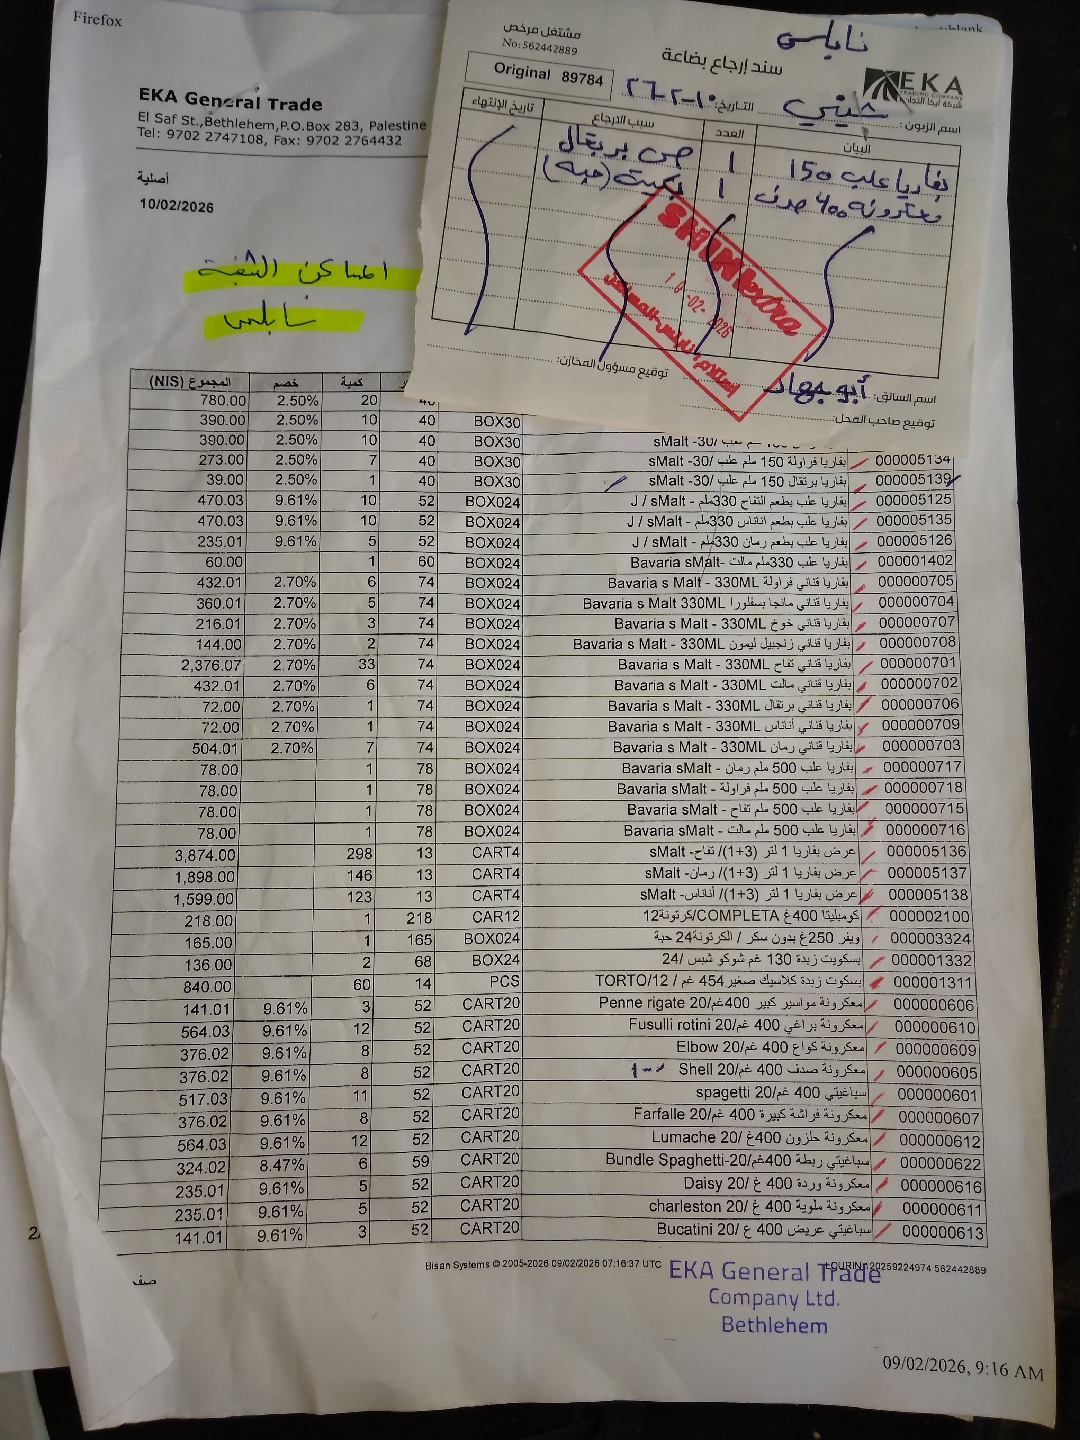 Firefox
EKA General Trade
El Saf St.,Bethlehem,P.O.Box 283, Palestine
Tel: 9702 2747108, Fax: 9702 2764432
أصلية
10/02/2026
اماكن الثقة
نابلس
نابلس
مشتغل مرخص
No: 562442889
سند إرجاع بضاعة
EKA
TRADING COMPANY
Original 89784
التاريخ: ١٠-٢-٢٦
اسم الزبون: شيني
البيان العدد سبب الارجاع تاريخ الإنتهاء
بفاريا علب 150 1 برتقال
معكرونه 400 صدف 1 بكيت (حبه)
10-02-2026
اسم السائق: أبو جهاد
توقيع مسؤول المخازن:
توقيع صاحب المحل:
كمية خصم المجموع (NIS)
40 20 2.50% 780.00
BOX30 40 10 2.50% 390.00
sMalt -30/ BOX30 40 10 2.50% 390.00
000005134 بفاريا فراولة 150 ملم علب /30- sMalt BOX30 40 7 2.50% 273.00
000005139 بفاريا برتقال 150 ملم علب /30- sMalt BOX30 40 1 2.50% 39.00
000005125 بفاريا علب بطعم التفاح 330ملم - J / sMalt BOX024 52 10 9.61% 470.03
000005135 بفاريا علب بطعم اناناس 330ملم - J / sMalt BOX024 52 10 9.61% 470.03
000005126 بفاريا علب بطعم رمان 330ملم - J / sMalt BOX024 52 5 9.61% 235.01
000001402 بفاريا علب 330ملم مالت- Bavaria sMalt BOX024 60 1 60.00
000000705 بفاريا قناني فراولة Bavaria s Malt - 330ML BOX024 74 6 2.70% 432.01
000000704 بفاريا قناني مانجا بسفلورا Bavaria s Malt 330ML BOX024 74 5 2.70% 360.01
000000707 بفاريا قناني خوخ Bavaria s Malt - 330ML BOX024 74 3 2.70% 216.01
000000708 بفاريا قناني زنجبيل ليمون Bavaria s Malt - 330ML BOX024 74 2 2.70% 144.00
000000701 بفاريا قناني تفاح Bavaria s Malt - 330ML BOX024 74 33 2.70% 2,376.07
000000702 بفاريا قناني مالت Bavaria s Malt - 330ML BOX024 74 6 2.70% 432.01
000000706 بفاريا قناني برتقال Bavaria s Malt - 330ML BOX024 74 1 2.70% 72.00
000000709 بفاريا قناني أناناس Bavaria s Malt - 330ML BOX024 74 1 2.70% 72.00
000000703 بفاريا قناني رمان Bavaria s Malt - 330ML BOX024 74 7 2.70% 504.01
000000717 بفاريا علب 500 ملم رمان - Bavaria sMalt BOX024 78 1 78.00
000000718 بفاريا علب 500 ملم فراولة - Bavaria sMalt BOX024 78 1 78.00
000000715 بفاريا علب 500 ملم تفاح - Bavaria sMalt BOX024 78 1 78.00
000000716 بفاريا علب 500 ملم مالت - Bavaria sMalt BOX024 78 1 78.00
000005136 عرض بفاريا 1 لتر (3+1)/ تفاح- sMalt CART4 13 298 3,874.00
000005137 عرض بفاريا 1 لتر (3+1)/ رمان- sMalt CART4 13 146 1,898.00
000005138 عرض بفاريا 1 لتر (3+1)/ أناناس- sMalt CART4 13 123 1,599.00
000002100 كومبليتا 400غ COMPLETA/كرتونة12 CAR12 218 1 218.00
000003324 ويفر 250غ بدون سكر / الكرتونة24 حبة BOX024 165 1 165.00
000001332 بسكويت زبدة 130 غم شوكو شبس /24 BOX24 68 2 136.00
000001311 بسكوت زبدة كلاسيك صغير 454 غم / TORTO/12 PCS 14 60 840.00
000000606 معكرونة مواسير كبير 400غم/20 Penne rigate CART20 52 3 9.61% 141.01
000000610 معكرونة براغي 400 غم/20 Fusulli rotini CART20 52 12 9.61% 564.03
000000609 معكرونة كواع 400 غم/20 Elbow CART20 52 8 9.61% 376.02
000000605 معكرونة صدف 400 غم/20 Shell CART20 52 8 9.61% 376.02
000000601 سباغيتي 400 غم/20 spagetti CART20 52 11 9.61% 517.03
000000607 معكرونة فراشة كبيرة 400 غم/20 Farfalle CART20 52 8 9.61% 376.02
000000612 معكرونة حلزون 400غ /20 Lumache CART20 52 12 9.61% 564.03
000000622 سباغيتي ربطة 400غم/20-Bundle Spaghetti CART20 59 6 8.47% 324.02
000000616 معكرونة وردة 400 غ /20 Daisy CART20 52 5 9.61% 235.01
000000611 معكرونة ملوية 400 غ /20 charleston CART20 52 5 9.61% 235.01
000000613 سباغيتي عريض 400 غ /20 Bucatini CART20 52 3 9.61% 141.01
Bisan Systems © 2005-2026 09/02/2026 07:16:37 UTC
20259224974 562442889
EKA General Trade
Company Ltd.
Bethlehem
09/02/2026, 9:16 AM